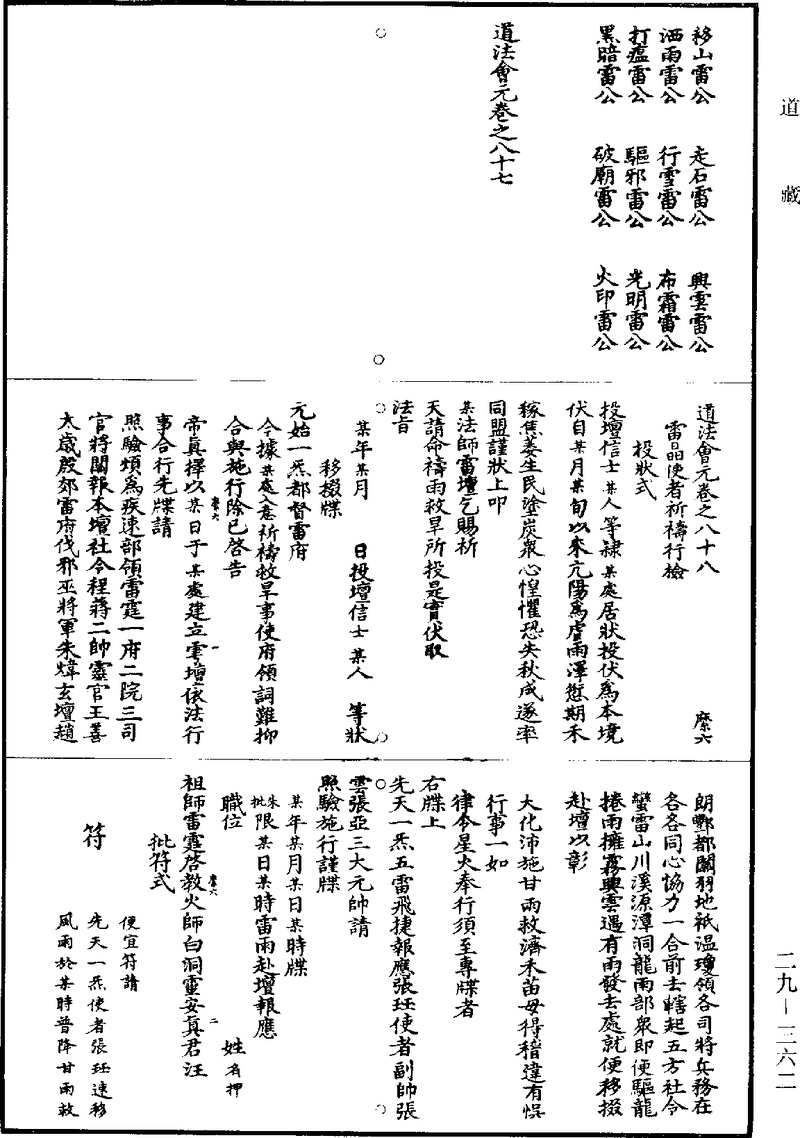 道藏
移山雷公　走石雷公　興雲雷公
洒雨雷公　行雪雷公　布霜雷公
打瘟雷公　驅邪雷公　光明雷公
黑暗雷公　破廟雷公　火印雷公
道法會元卷之八十七
道法會元卷之八十八　席六
雷晶使者祈禱行檢
投狀式
投壇信士某人等隸某處居狀投伏爲本境
伏自某月某旬以來亢陽爲虐雨澤愆期禾
稼焦萎生民塗炭衆心惶懼恐失秋成遂率
同盟謹狀上叩
某法師雷壇乞賜祈
天請命禱雨救旱所投是實伏取
法旨
某年某月　日投壇信士某人　等狀
移掇牒
元始一炁都督雷府
今據某處入意祈禱救旱事使府領詞難抑
合與施行除已啓告
帝真擇以某日于某處建立雩壇依法行
事合行先牒請
照驗煩爲疾速部領雷霆一府二院三司
官將關報本壇社令程蔣二帥靈官王善
太歲殷郊雷府伐邪巫將軍朱煒玄壇趙
朗酆都關羽地祇溫瓊領各司將兵務在
各各同心協力一合前去轄起五方社令
蠻雷山川溪源潭洞龍雨部衆即便驅龍
捲雨擁霧興雲遇有雨發去處就便移掇
赴壇以彰
大化沛施甘雨救濟禾苗毋得稽違有悞
行事一如
律令星火奉行須至專牒者
右牒上
先天一炁五雷飛捷報應張珏使者副帥張
雲張亞三大元帥請
照驗施行謹牒
某年某月某日某時牒
朱批限某日某時雷雨赴壇報應
職位　姓名押
祖師雷霆啓教火師白洞靈安真君汪
批符式
便宜符請
符　先天一炁使者張珏速移
風雨於某時普降甘雨救
二九—三六二